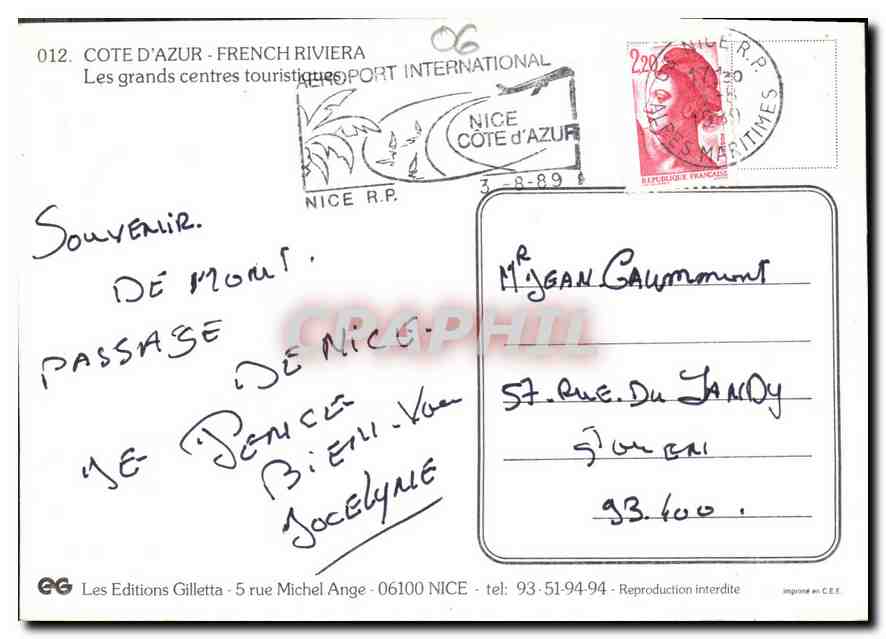 06
012. COTE D'AZUR - FRENCH RIVIERA
Les grands centres touristiques
AEROPORT INTERNATIONAL
NICE
CÔTE d'AZUR
NICE R.P.
3 -8-89
2,20
REPUBLIQUE FRANÇAISE
NICE R.P.
ALPES MARITIMES
SOUVENIR.
DE MONT.
PASSAGE
DE NICE.
JE PENCE
BIEN. Vou
JOCELYNE
MR JEAN GAUMMONT
57. RUE. DU LANDY
St OUEN
93.400.
CRAPHIL
EG Les Editions Gilletta - 5 rue Michel Ange - 06100 NICE - tel: 93-51-94-94 - Reproduction interdite
imprimé en C.E.E.